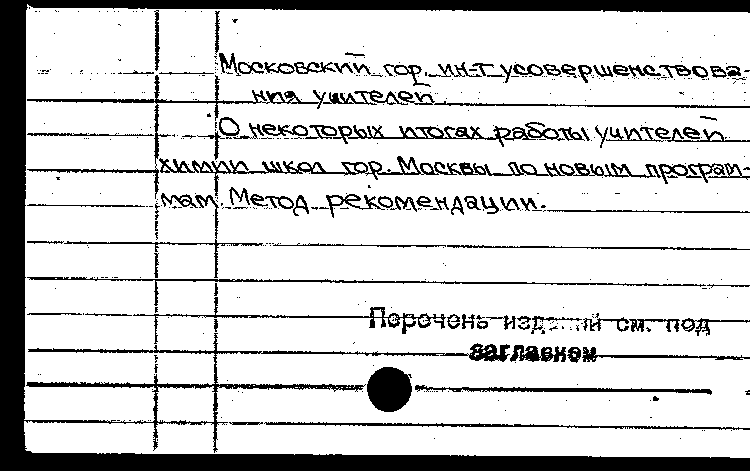 Московский гор. ин-т усовершенствова-
ния учителей
О некоторых итогах работы учителей
химии школ гор. Москвы по новым програм-
мам Метод. рекомендации.
Перечень изданий см. под
заглавием